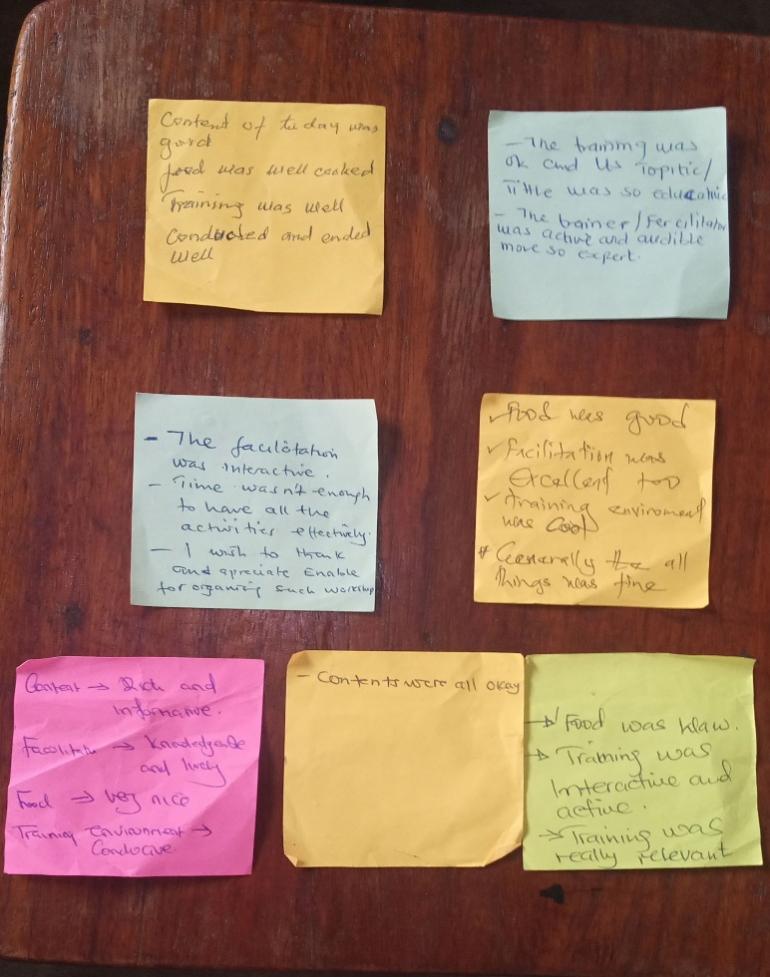 Content of today was
good
food was well cooked
Training was well
Conducted and ended
well
- The training was
ok and Its Topitic/
Tittle was so educative
- The trainer/Fercilitator
was active and audible
more so expert.
- The facilitation
was interactive.
- Time wasn't enough
to have all the
activities effectively.
- I wish to thank
and apreciate Enable
for organing such workshop
✓ Food was good
✓ Facilitation was
Excellent too
✓ training enviroment
was Cool
# Generally the all
things was fine
Content → Rich and
informative.
Facilitator → Knowledgeable
and lively
Food → very nice
Training environment →
Conducive.
- Contents were all okay
→ Food was klaw.
→ Training was
Interactive and
active.
→ Training was
really relevant